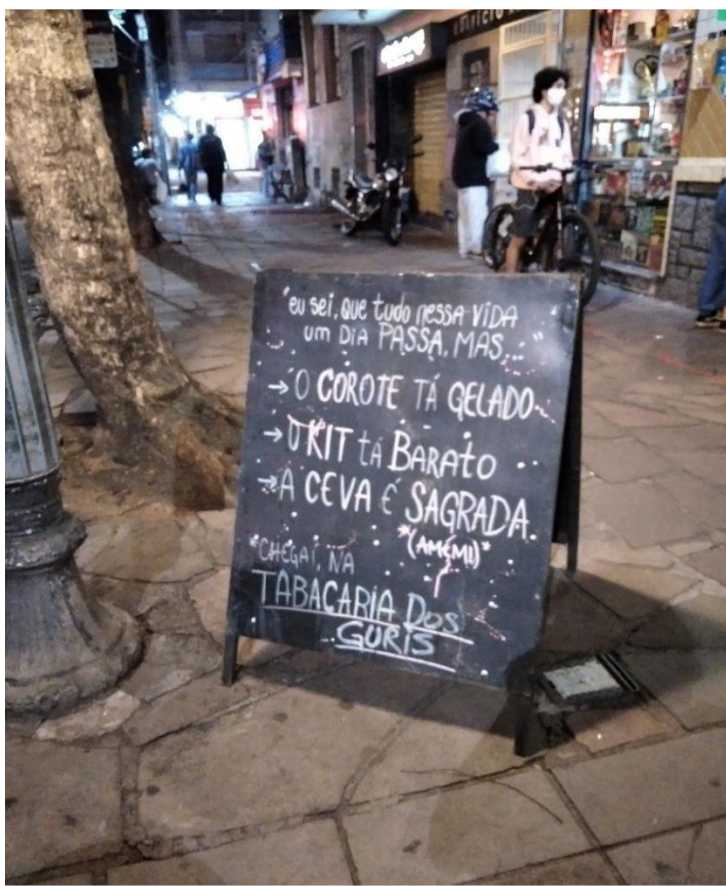 "eu sei, que tudo nessa VIDA
um DIA PASSA, MAS..."
→ O COROTE TÁ GELADO
→ O KIT tá BARAtO
→ A CEVA É SAGRADA
*(AMÉM!)*
*CHEGAÍ, NA
TABACARIA DOS
GURIS